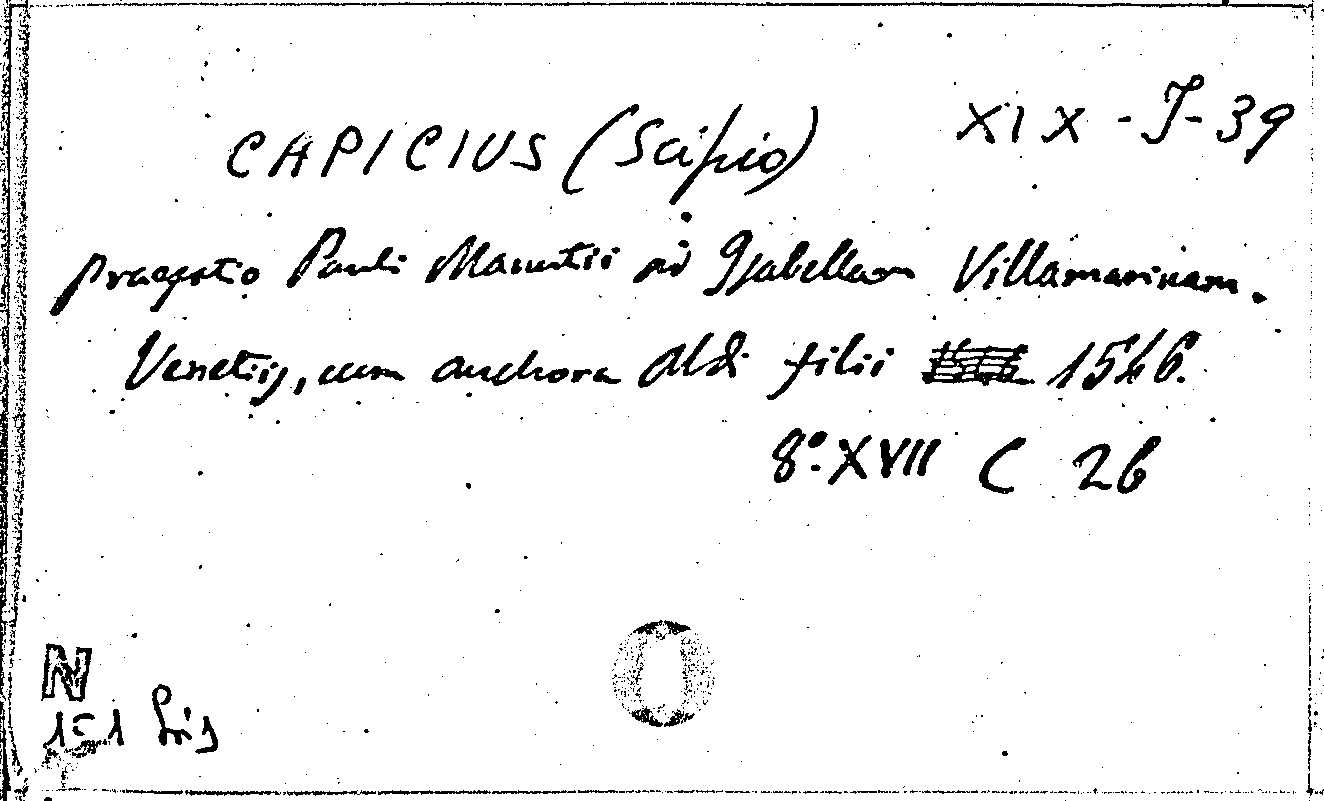 CAPICIUS (Scipio) XIX-J-39
praefatio Pauli Manutii ad Isabellam Villamarinam.
Venetijs, cum anchora Aldi filii 1546.
8º. XVII C 26
N
151 bis